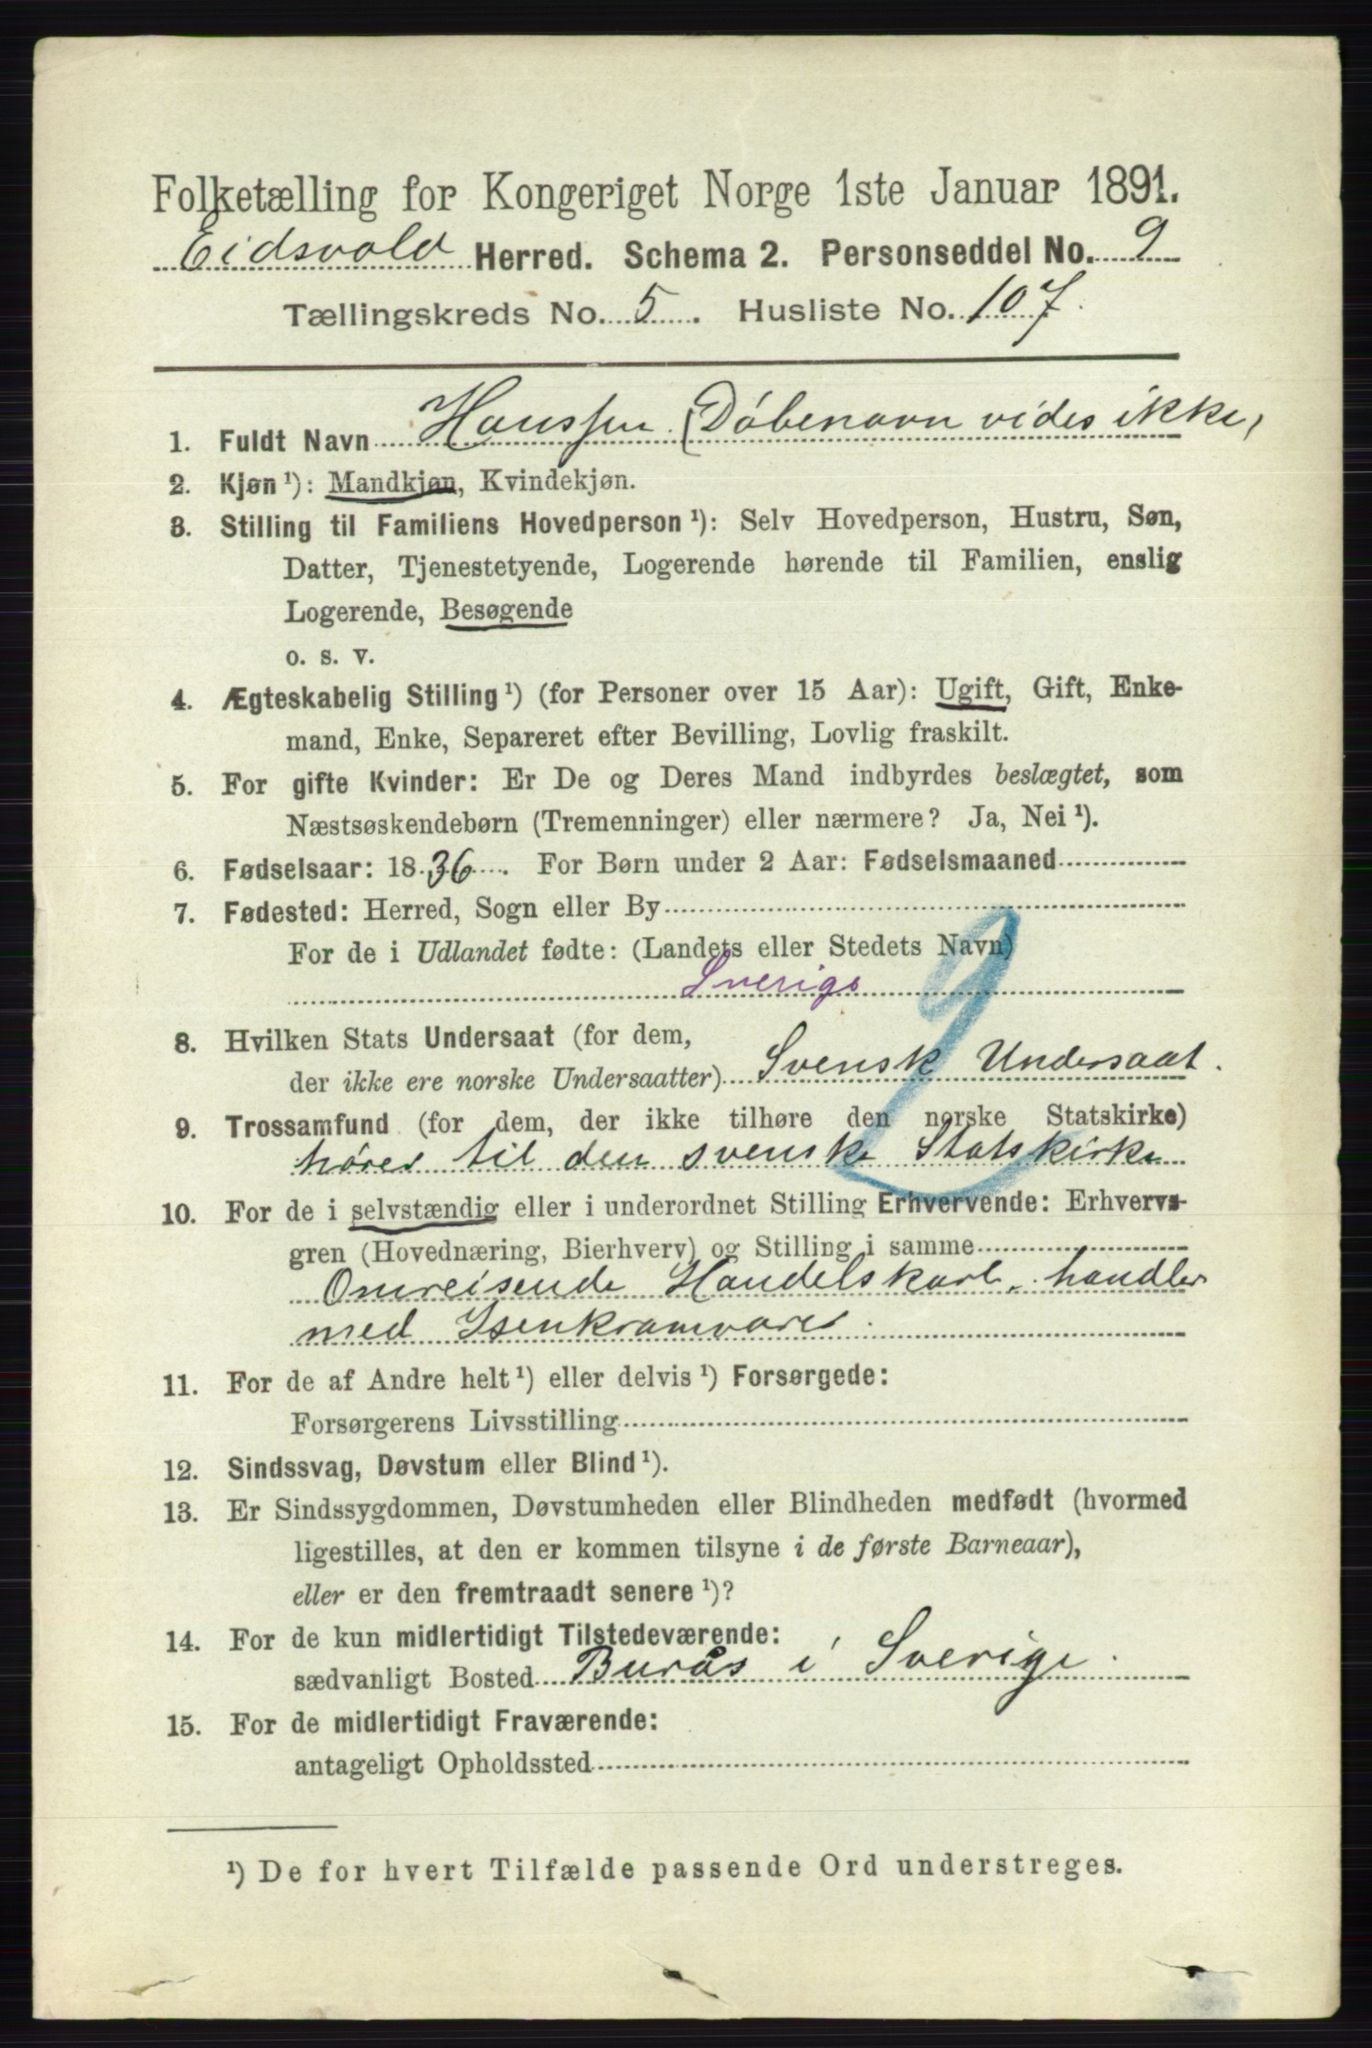 Folketælling for Kongeriget Norge 1ste Januar 1891.
Eidsvold Herred. Schema 2. Personseddel No. 9
Tællingskreds No. 5. Husliste No. 107.
1. Fuldt Navn Hanssen (Døbenavn vides ikke)
2. Kjøn ¹): Mandkjøn, Kvindekjøn.
3. Stilling til Familiens Hovedperson ¹): Selv Hovedperson, Hustru, Søn,
Datter, Tjenestetyende, Logerende hørende til Familien, enslig
Logerende, Besøgende
o. s. v.
4. Ægteskabelig Stilling ¹) (for Personer over 15 Aar): Ugift, Gift, Enke-
mand, Enke, Separeret efter Bevilling, Lovlig fraskilt.
5. For gifte Kvinder: Er De og Deres Mand indbyrdes beslægtet, som
Næstsøskendebørn (Tremenninger) eller nærmere? Ja, Nei ¹).
6. Fødselsaar: 1836. For Børn under 2 Aar: Fødselsmaaned
7. Fødested: Herred, Sogn eller By
For de i Udlandet fødte: (Landets eller Stedets Navn)
Sverige
9
8. Hvilken Stats Undersaat (for dem,
der ikke ere norske Undersaatter) Svensk Undersaat.
9. Trossamfund (for dem, der ikke tilhøre den norske Statskirke)
hører til den svenske Statskirke
10. For de i selvstændig eller i underordnet Stilling Erhvervende: Erhvervs-
gren (Hovednæring, Bierhverv) og Stilling i samme
Omreisende Handelskarl, handler
med Isenkramvarer.
11. For de af Andre helt ¹) eller delvis ¹) Forsørgede:
Forsørgerens Livsstilling
12. Sindssvag, Døvstum eller Blind ¹).
13. Er Sindssygdommen, Døvstumheden eller Blindheden medfødt (hvormed
ligestilles, at den er kommen tilsyne i de første Barneaar),
eller er den fremtraadt senere ¹)?
14. For de kun midlertidigt Tilstedeværende:
sædvanligt Bosted Burås i Sverige.
15. For de midlertidigt Fraværende:
antageligt Opholdssted
¹) De for hvert Tilfælde passende Ord understreges.